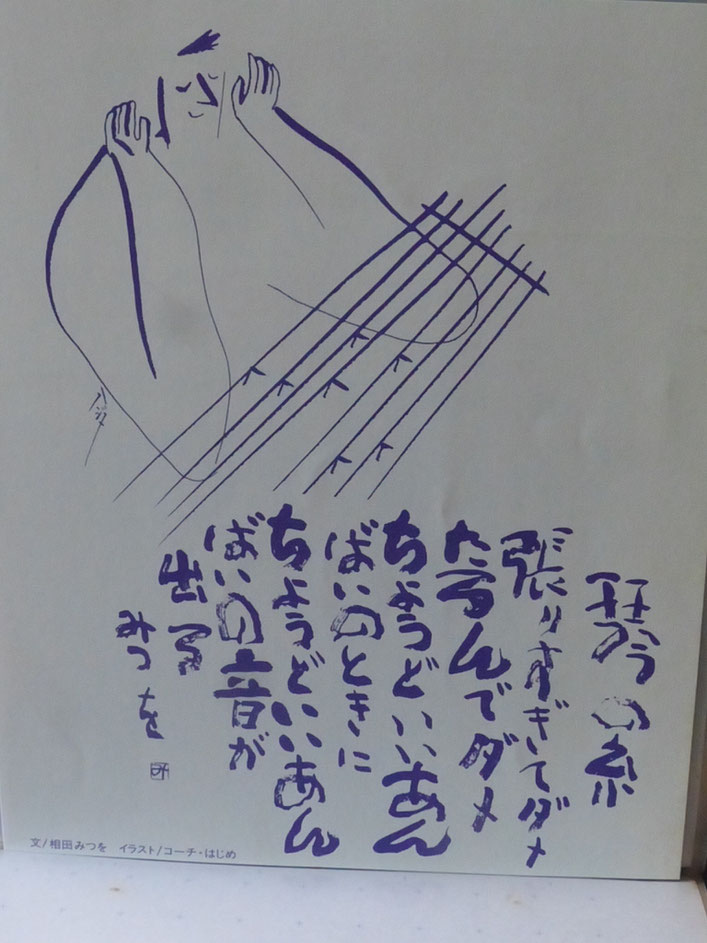 琴の糸
張りすぎてダメ
たるんでダメ
ちょうどいいあん
ばいのときに
ちょうどいいあん
ばいの音が
出る
みつを
文/相田みつを イラスト/コーチ・はじめ